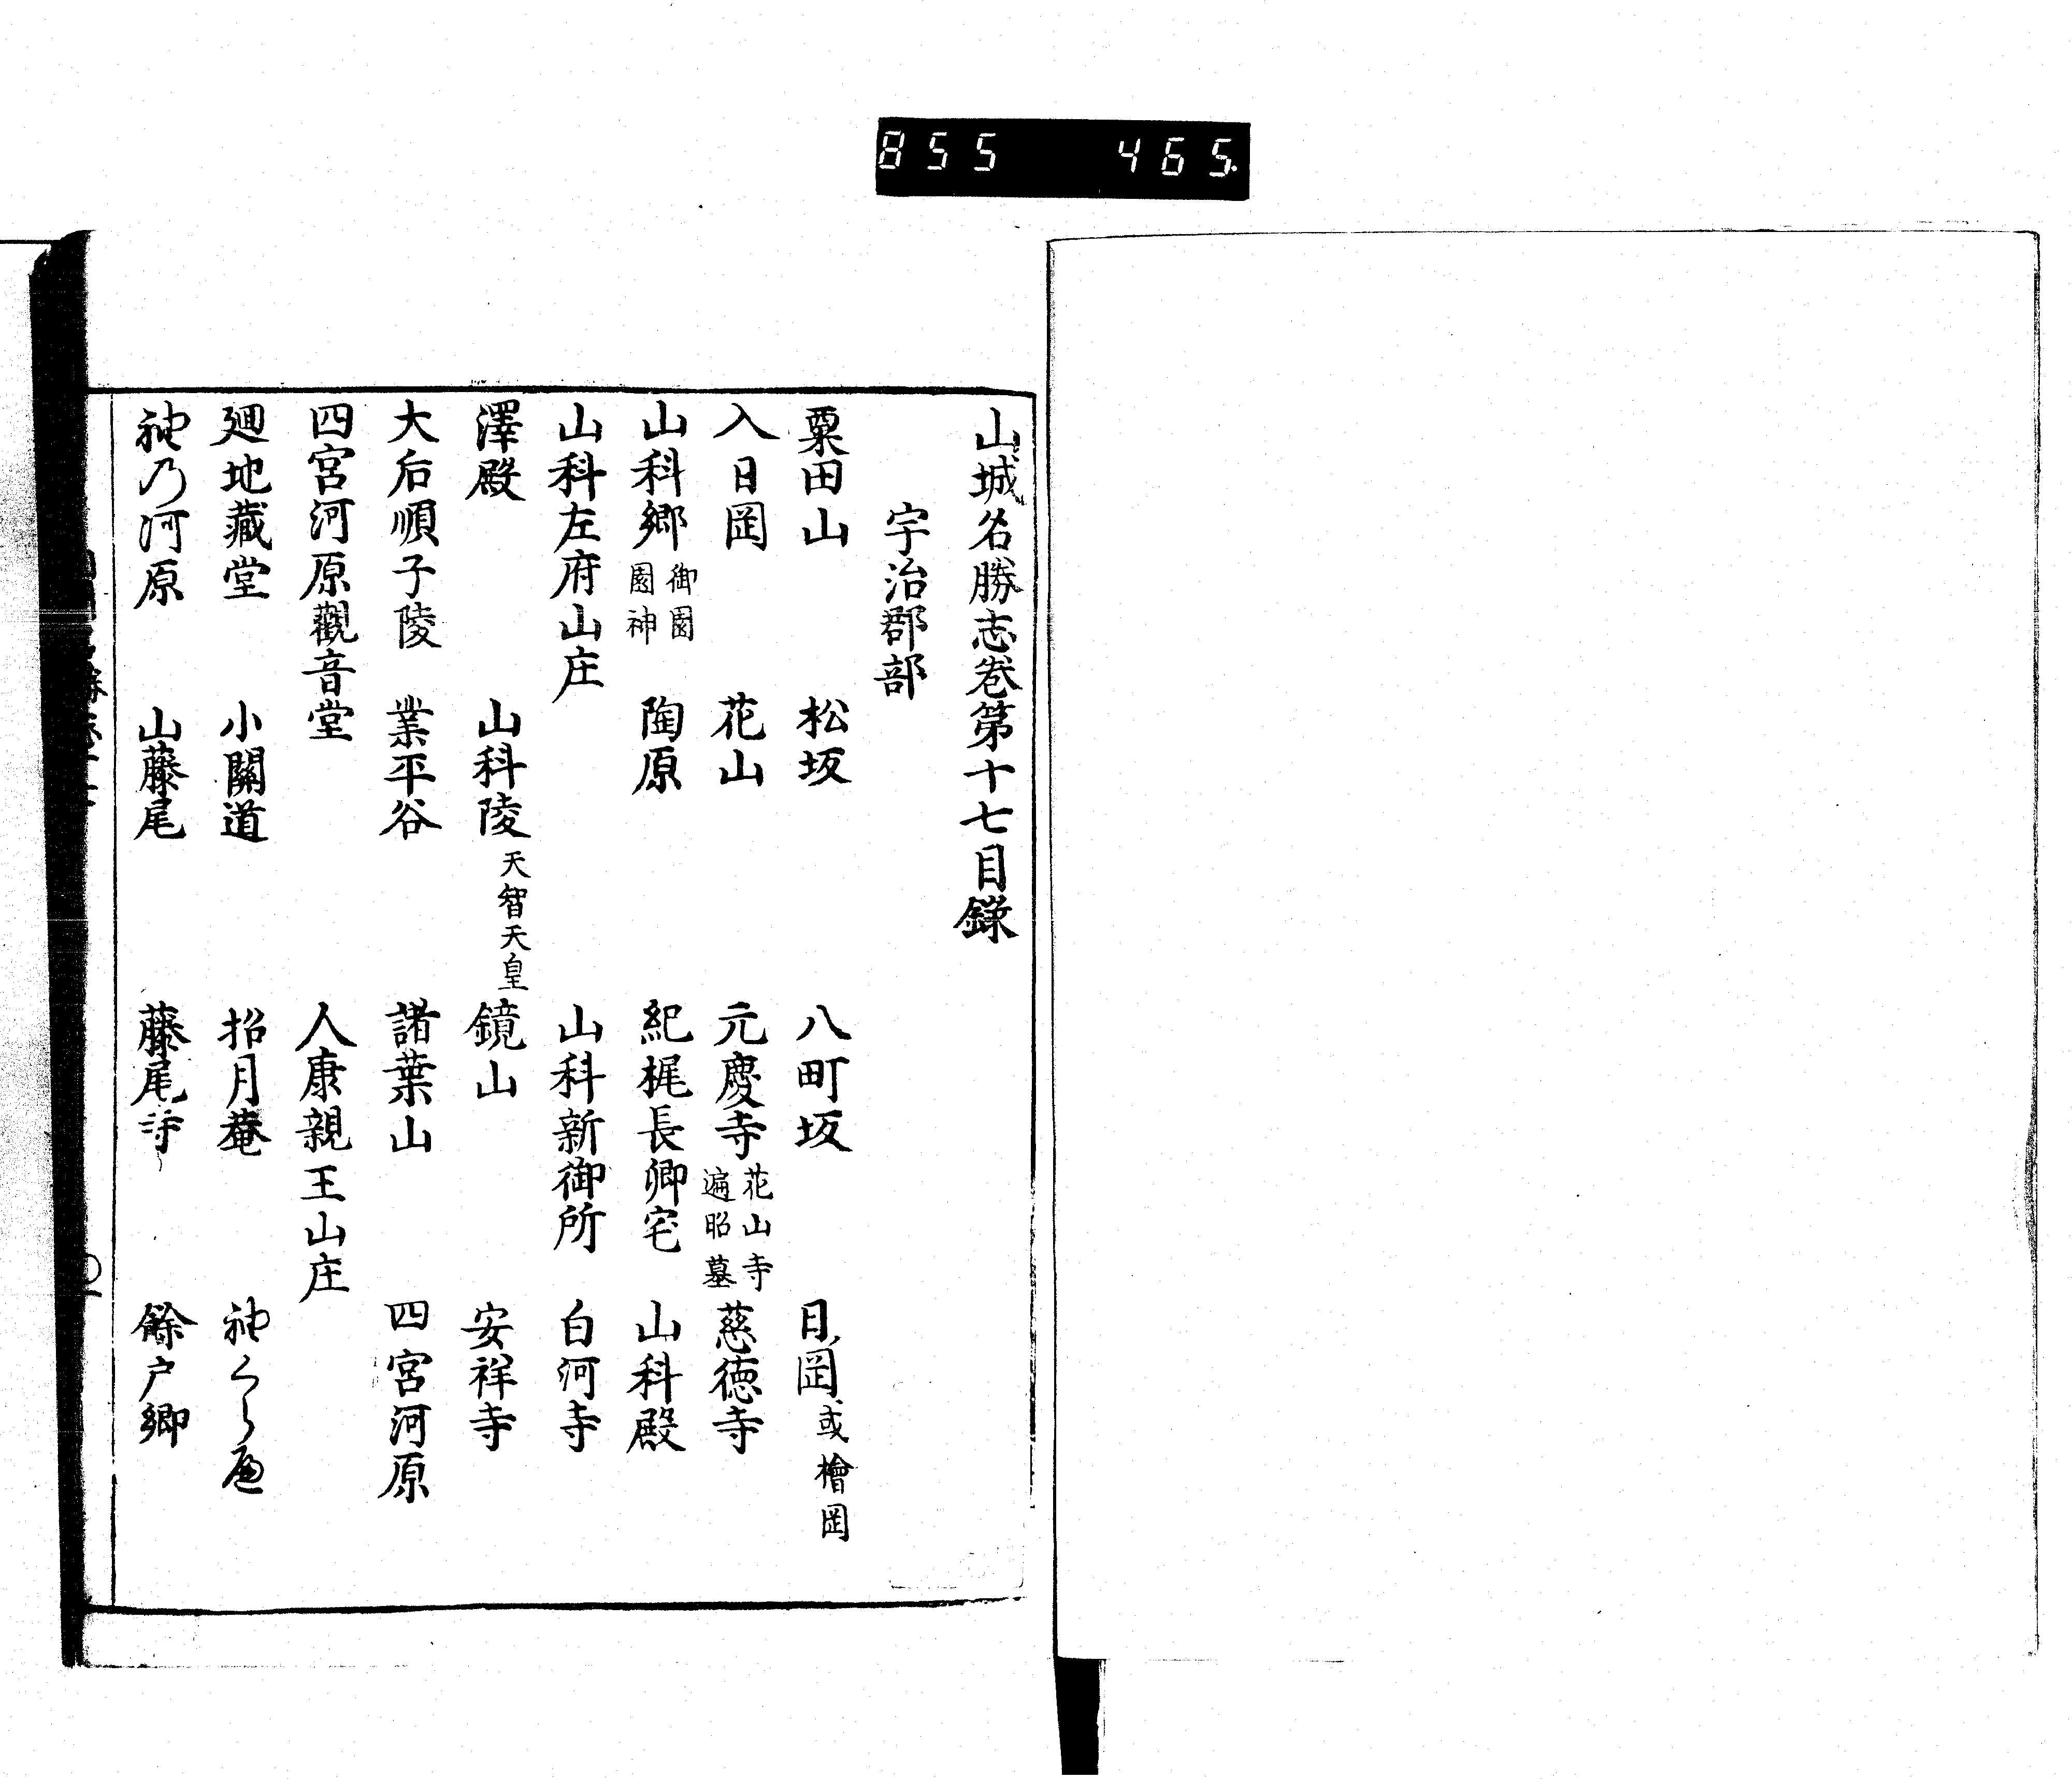 855 465
山城名勝志巻第十七目録
宇治郡部
粟田山 松坂 八町坂 日岡 或檜岡
入日岡 花山 元慶寺 花山寺 遍昭墓 慈徳寺
山科郷 御園 園神 陶原 紀梶長卿宅 山科殿
山科左府山庄 山科新御所 白河寺
澤殿 山科陵 天智天皇 鏡山 安祥寺
大后順子陵 業平谷 諸葉山 四宮河原
四宮河原觀音堂 人康親王山庄
廻地藏堂 小關道 招月菴 神くら
神乃河原 山藤尾 藤尾寺 餘戸郷